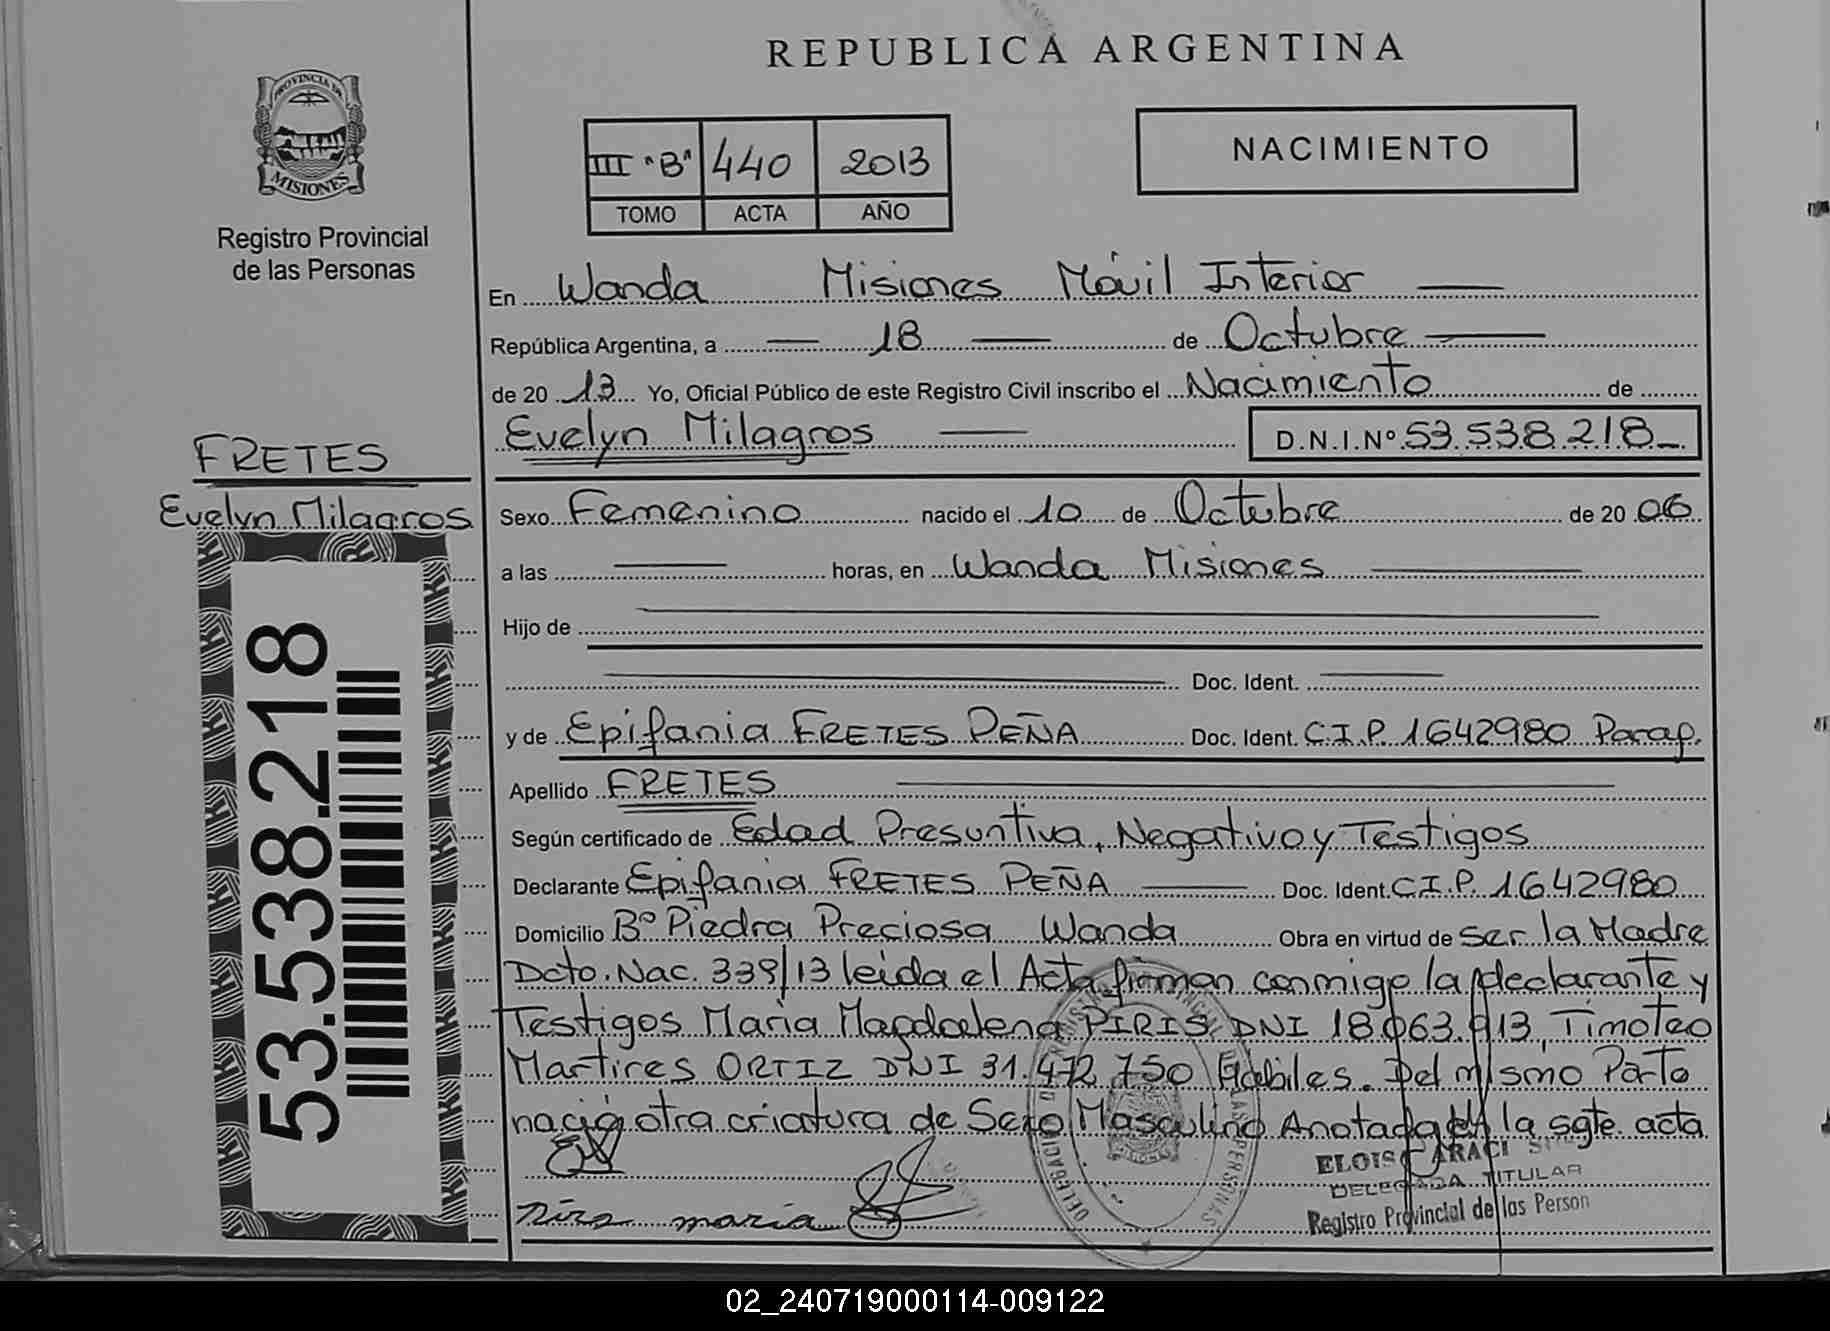 REPUBLICA ARGENTINA
PROVINCIA DE
MISIONES
Registro Provincial
de las Personas
III "B" 440 2013
TOMO ACTA AÑO
NACIMIENTO
En Wanda Misiones Móvil Interior
República Argentina, a 18 de Octubre
de 20 13 Yo, Oficial Público de este Registro Civil inscribo el Nacimiento de
Evelyn Milagros D.N.I.Nº 53.538.218
FRETES
Evelyn Milagros
53.538.218
Sexo Femenino nacido el 10 de Octubre de 20 06
a las horas, en Wanda Misiones
Hijo de
Doc. Ident.
y de Epifania FRETES PEÑA Doc. Ident. C.I.P. 1642980 Parag.
Apellido FRETES
Según certificado de Edad Presuntiva, Negativo y Testigos
Declarante Epifania FRETES PEÑA Doc. Ident. C.I.P. 1642980
Domicilio Bº Piedra Preciosa Wanda Obra en virtud de ser la Madre
Dcto. Nac. 339/13 leida el Acta firman conmigo la declarante y
Testigos Maria Magdalena PIRIS DNI 18.063.913, Timoteo
Martires ORTIZ DNI 31.472.750 Habiles. Del mismo Parto
nació otra criatura de Sexo Masculino Anotada en la sgte acta
Piris maria
DELEGADA TITULAR
Registro Provincial de las Person
02_240719000114-009122